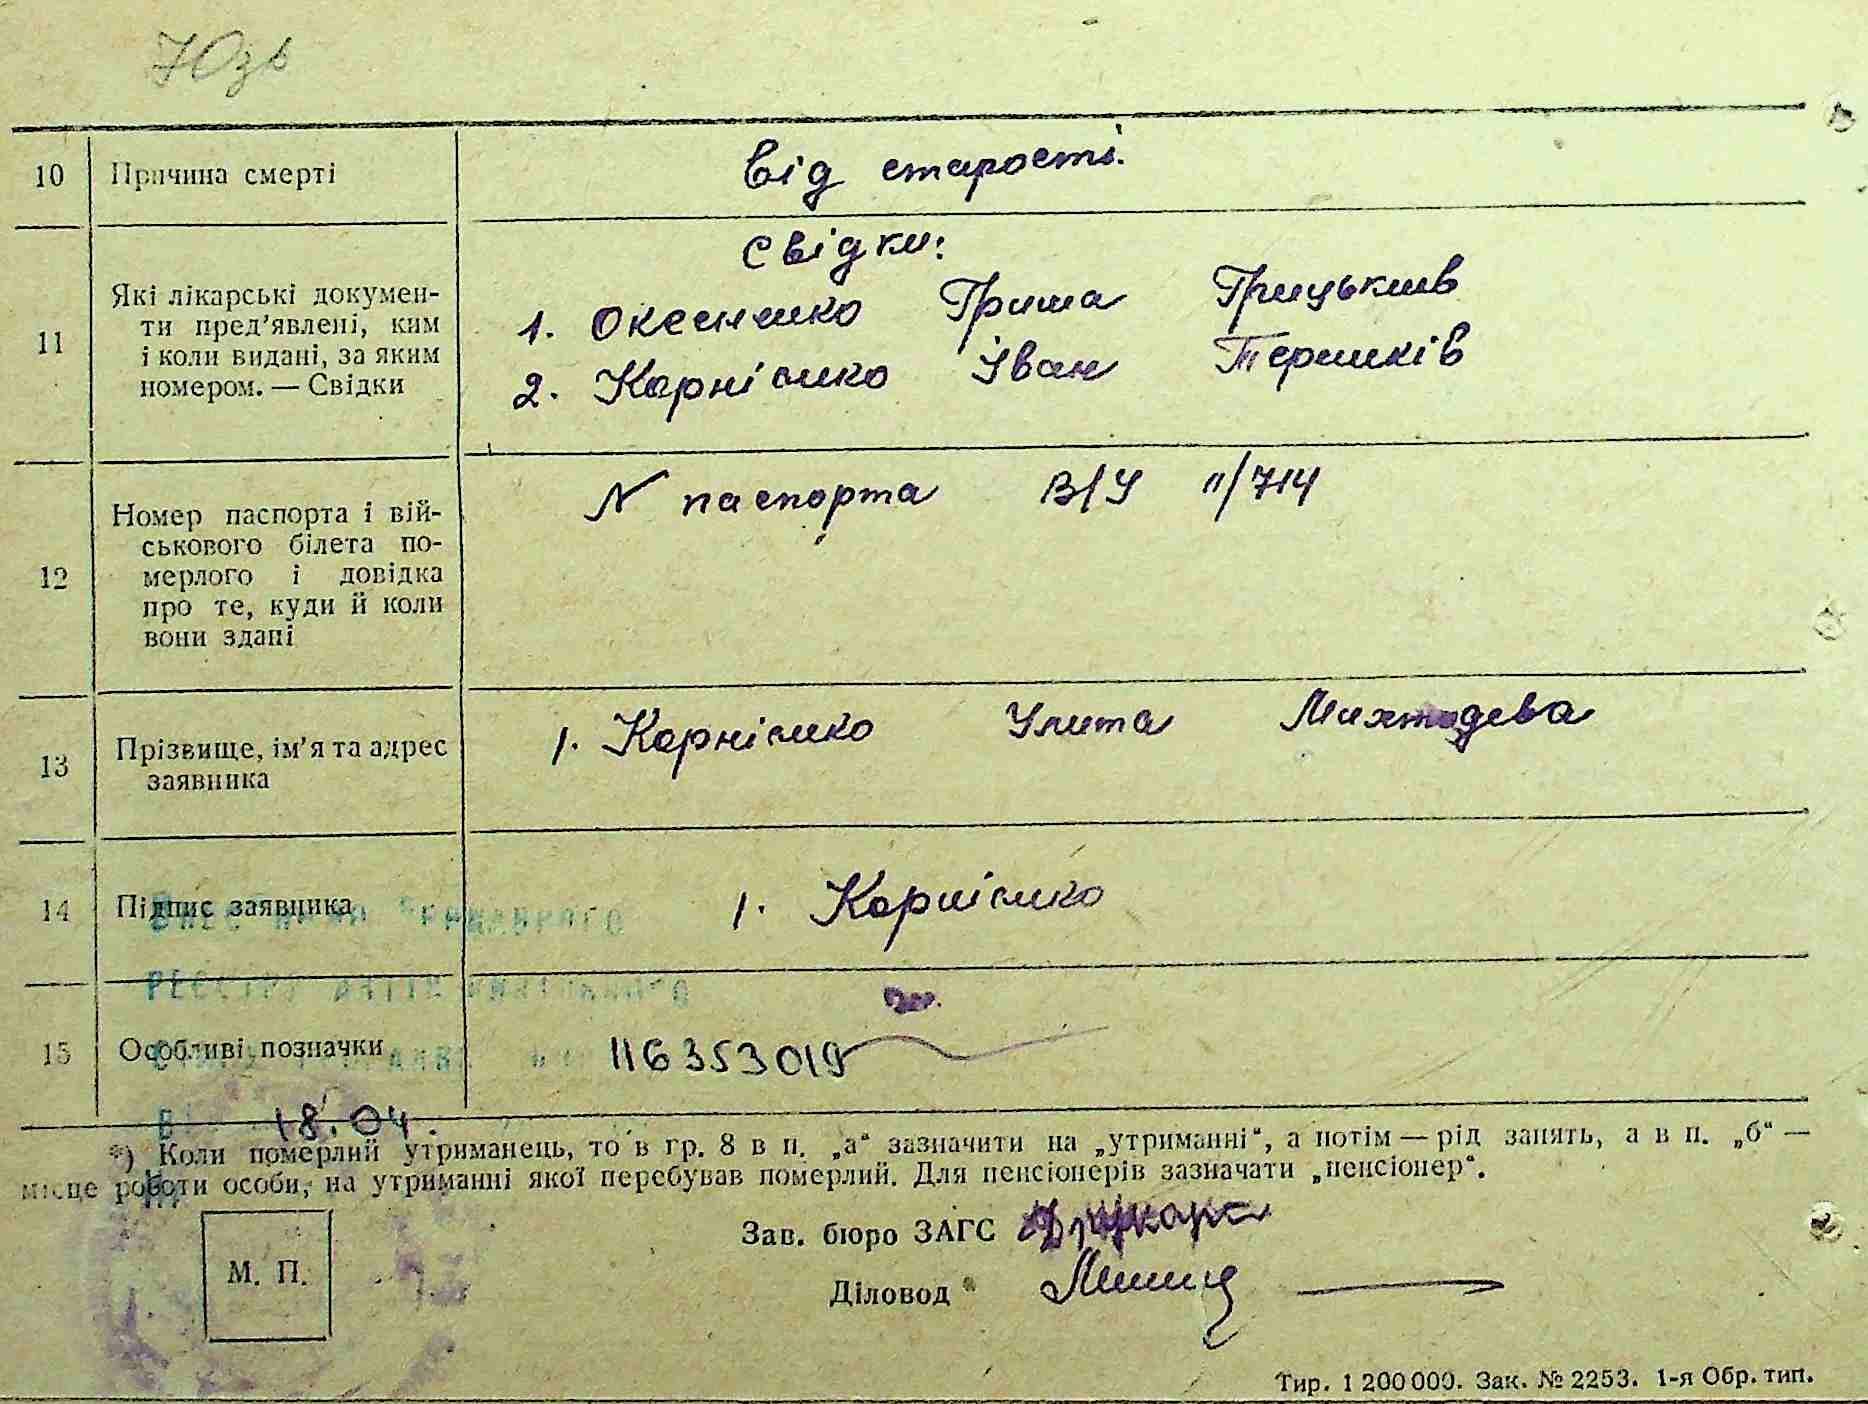 Юзь
10 Причина смерті Від старості.
Свідки:
11 Які лікарські докумен-
ти пред'явлені, ким
і коли видані, за яким
номером. — Свідки
1. Гриша Грицьків
2. Корнієнко Іван Терешків
12 Номер паспорта і вій-
ськового білета по-
мерлого і довідка
про те, куди й коли
вони здані
N паспорта В/У "/714
13 Прізвище, ім'я та адрес
заявника
1. Корнієнко Улита
14 Підпис заявника 1. Корнієнко
державного
реєстру актів цивільного
15 Особливі позначки 116353019
18.04.
*) Коли померлий утриманець, то в гр. 8 в п. „а“ зазначити на „утриманні“, а потім — рід занять, а в п. „б“ —
місце роботи особи, на утриманні якої перебував померлий. Для пенсіонерів зазначати „пенсіонер“.
Зав. бюро ЗАГС
М. П.
Діловод
Тир. 1 200 000. Зак. № 2253. 1-я Обр. тип.